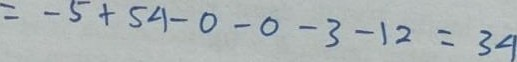 = -5 + 54 - 0 - 0 - 3 - 12 = 34